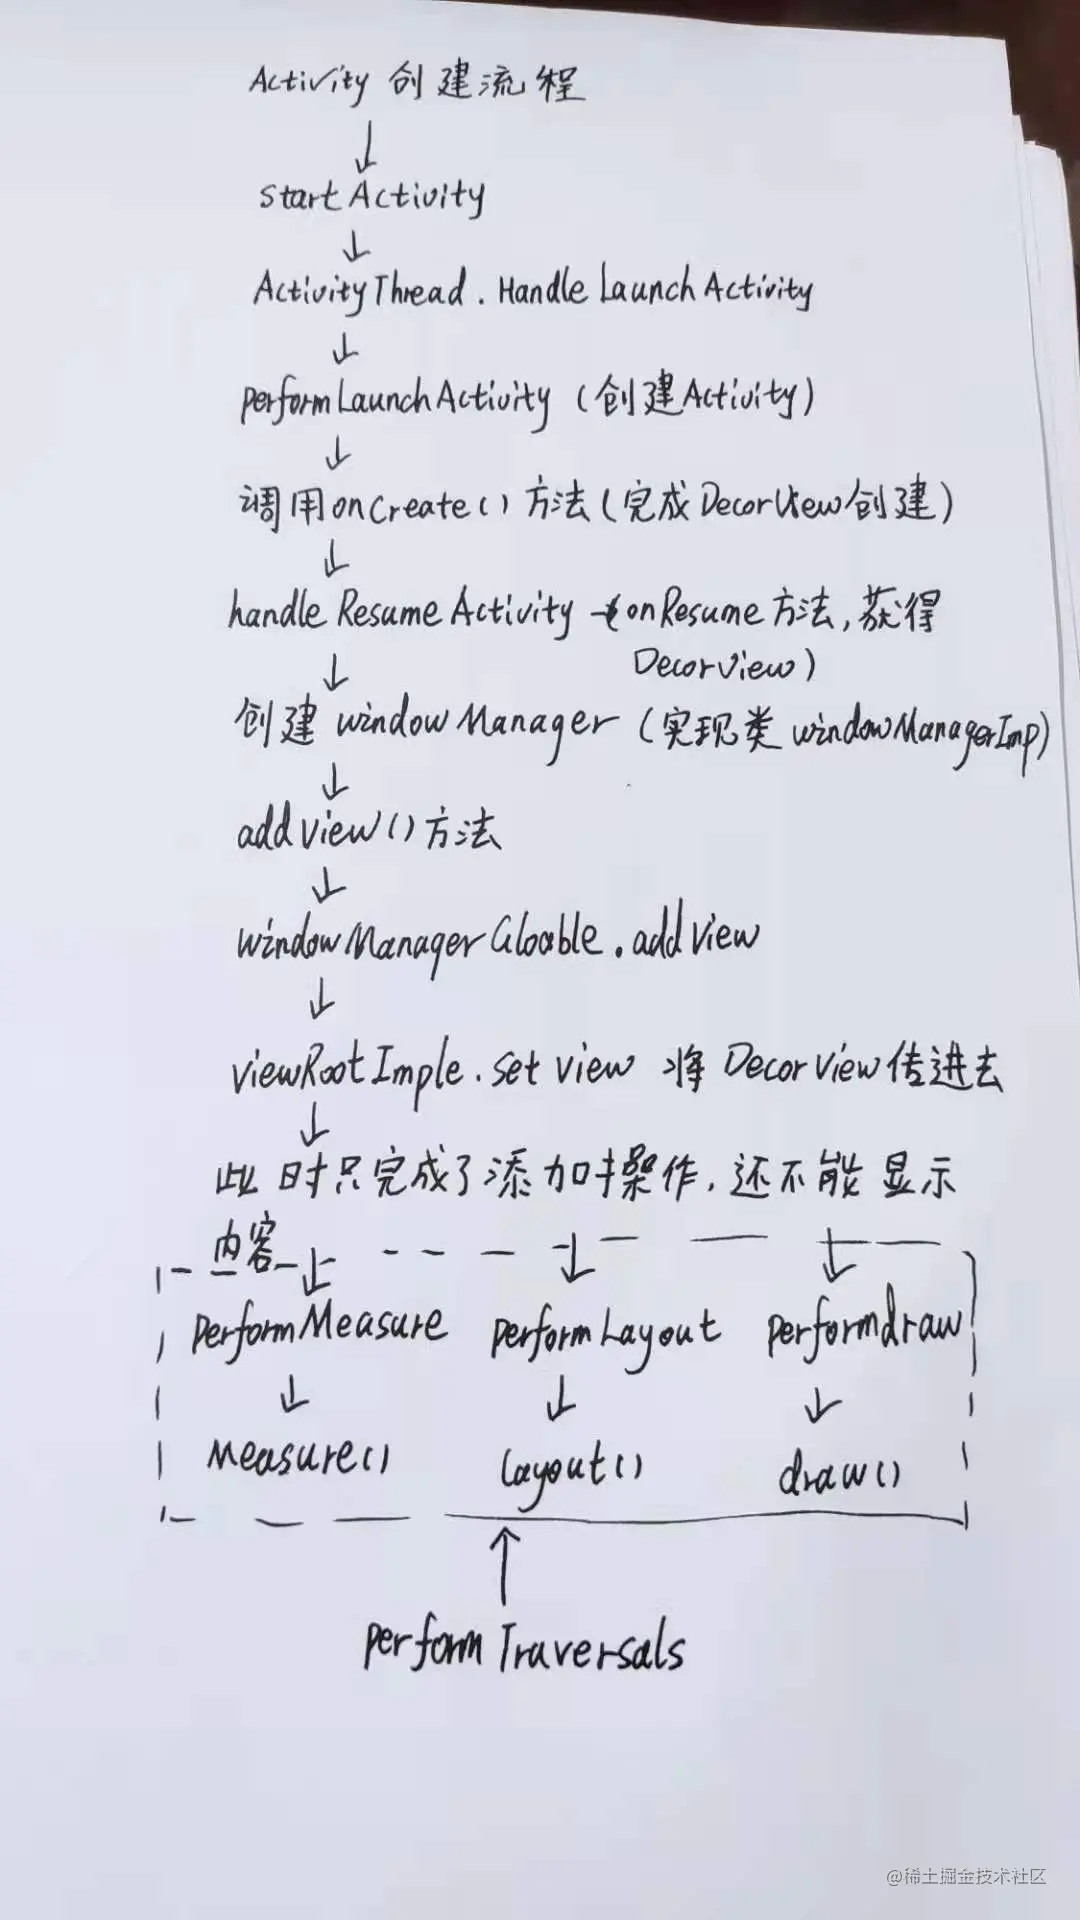 Activity 创建流程
startActivity
ActivityThread.HandleLaunchActivity
performLaunchActivity (创建Activity)
调用onCreate()方法(完成DecorView创建)
handleResumeActivity →(onResume方法,获得
DecorView)
创建 windowManager (实现类 windowManagerImp)
addview()方法
windowManagerGloable.addview
viewRootImple.setview 将 DecorView传进去
此时只完成了添加操作,还不能显示
内容
performMeasure performLayout performdraw
Measure() Layout() draw()
performTraversals
@稀土掘金技术社区